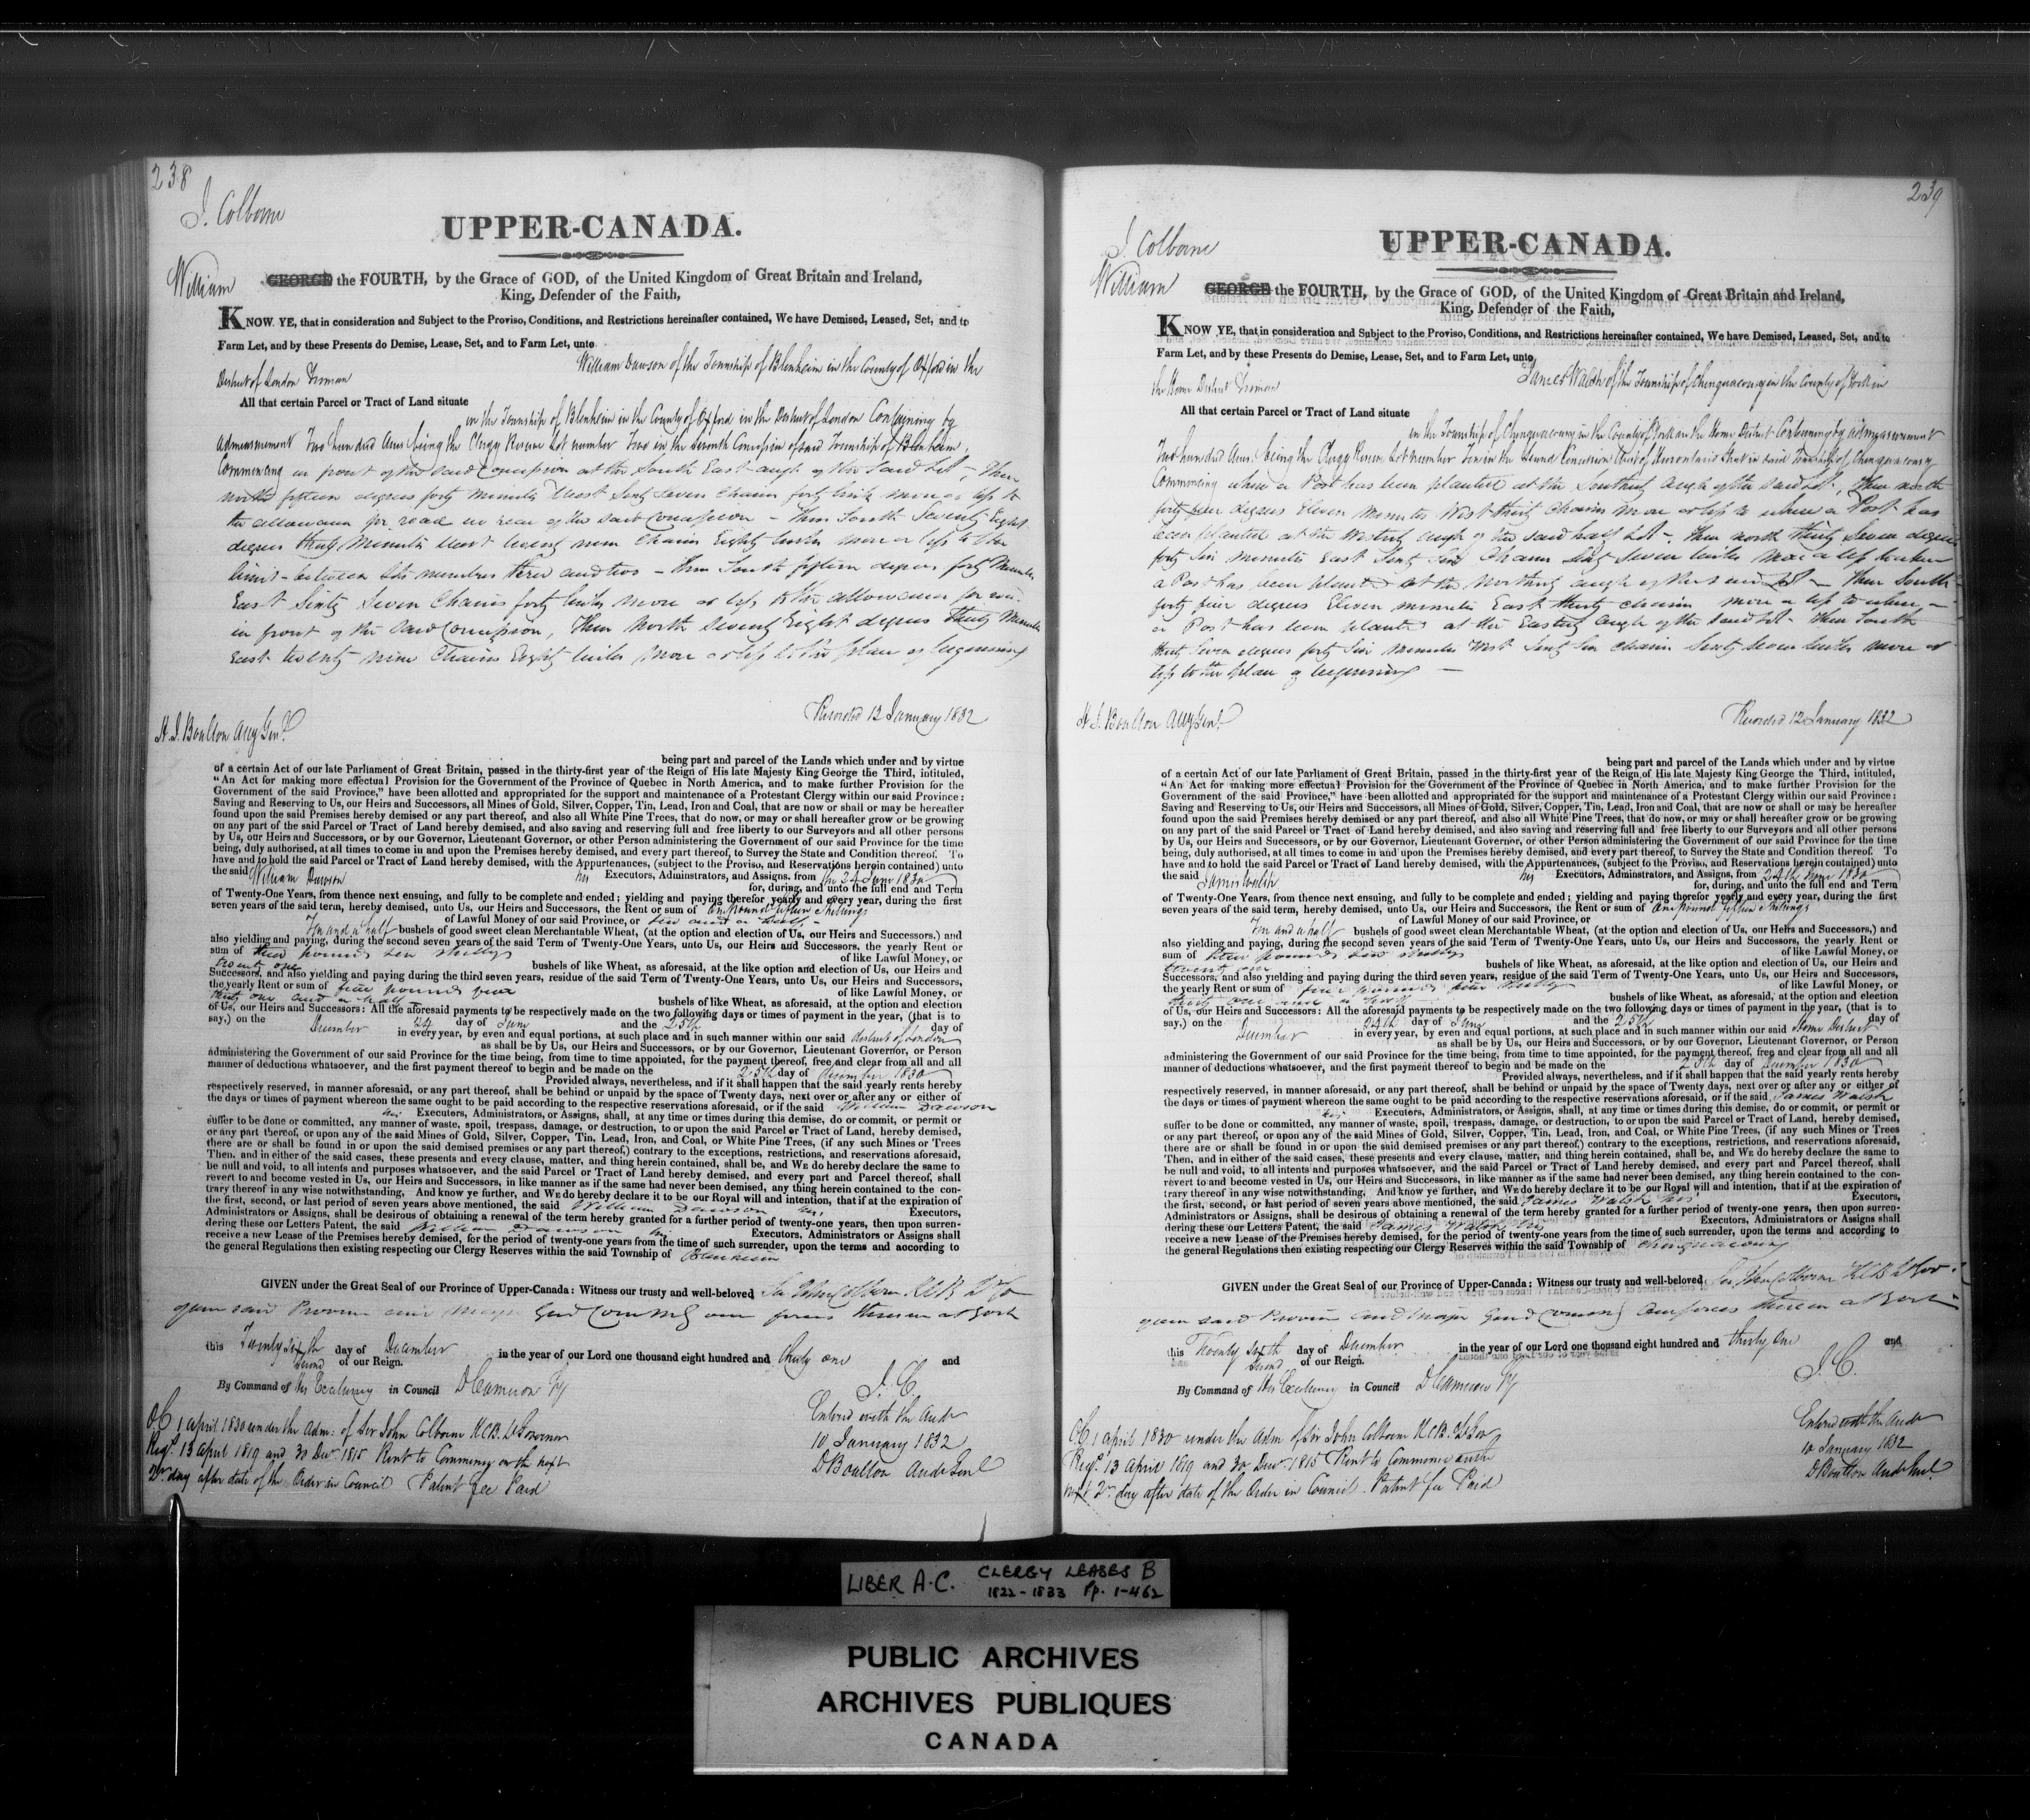 238
J. Colborne
UPPER-CANADA.
William GEORGE the FOURTH, by the Grace of GOD, of the United Kingdom of Great Britain and Ireland,
King, Defender of the Faith,
KNOW YE, that in consideration and Subject to the Proviso, Conditions, and Restrictions hereinafter contained, We have Demised, Leased, Set, and to
Farm Let, and by these Presents do Demise, Lease, Set, and to Farm Let, unto
William Dawson of the Township of Blenheim in the County of Oxford in the
District of London Yeoman
All that certain Parcel or Tract of Land situate
in the Township of Blenheim in the County of Oxford in the District of London Containing by
admeasurement Two hundred Acres being the Clergy Reserve Lot number Two in the seventh Concession of said Township of Blenheim,
Commencing in front of the said Concession at the South East angle of the said Lot, Then
north fifteen degrees forty minutes West Sixty Seven Chains forty links more or less to
the allowance for road in rear of the said Concession – Then South Seventy Eight
degrees thirty Minutes West twenty nine Chains Eighty links more or less to the
limit between lots numbers three and two – Then South fifteen degrees forty Minutes
East Sixty Seven Chains forty links more or less to the allowance for road
in front of the said Concession, Then North Seventy Eight degrees Thirty Minutes
East twenty nine Chains Eighty links more or less to the place of beginning
Recorded 12 January 1832
H. J. Boulton Atty Genl.
being part and parcel of the Lands which under and by virtue
of a certain Act of our late Parliament of Great Britain, passed in the thirty-first year of the Reign of His late Majesty King George the Third, intituled,
"An Act for making more effectual Provision for the Government of the Province of Quebec in North America, and to make further Provision for the
Government of the said Province," have been allotted and appropriated for the support and maintenance of a Protestant Clergy within our said Province:
Saving and Reserving to Us, our Heirs and Successors, all Mines of Gold, Silver, Copper, Tin, Lead, Iron and Coal, that are now or shall or may be hereafter
found upon the said Premises hereby demised or any part thereof, and also all White Pine Trees, that do now, or may or shall hereafter grow or be growing
on any part of the said Parcel or Tract of Land hereby demised, and also saving and reserving full and free liberty to our Surveyors and all other persons
by Us, our Heirs and Successors, or by our Governor, Lieutenant Governor, or other Person administering the Government of our said Province for the time
being, duly authorised, at all times to come in and upon the Premises hereby demised, and every part thereof, to Survey the State and Condition thereof. To
have and to hold the said Parcel or Tract of Land hereby demised, with the Appurtenances, (subject to the Proviso, and Reservations herein contained) unto
the said William Dawson his Executors, Adminstrators, and Assigns, from the 24 June 1830
for, during, and unto the full end and Term
of Twenty-One Years, from thence next ensuing, and fully to be complete and ended; yielding and paying therefor yearly and every year, during the first
seven years of the said term, hereby demised, unto Us, our Heirs and Successors, the Rent or sum of One pound fifteen Shillings
of Lawful Money of our said Province, or ten and a half
Ten and a half bushels of good sweet clean Merchantable Wheat, (at the option and election of Us, our Heirs and Successors,) and
also yielding and paying, during the second seven years of the said Term of Twenty-One Years, unto Us, our Heirs and Successors, the yearly Rent or
sum of three pounds ten shillings of like Lawful Money, or
twenty one bushels of like Wheat, as aforesaid, at the like option and election of Us, our Heirs and
Successors, and also yielding and paying during the third seven years, residue of the said Term of Twenty-One Years, unto Us, our Heirs and Successors,
the yearly Rent or sum of five pounds five of like Lawful Money, or
thirty one and a half bushels of like Wheat, as aforesaid, at the option and election
of Us, our Heirs and Successors: All the aforesaid payments to be respectively made on the two following days or times of payment in the year, (that is to
say,) on the 24 day of June and the 25th day of
December in every year, by even and equal portions, at such place and in such manner within our said district of London
as shall be by Us, our Heirs and Successors, or by our Governor, Lieutenant Governor, or Person
administering the Government of our said Province for the time being, from time to time appointed, for the payment thereof, free and clear from all and all
manner of deductions whatsoever, and the first payment thereof to begin and be made on the 25th day of December 1830
Provided always, nevertheless, and if it shall happen that the said yearly rents hereby
respectively reserved, in manner aforesaid, or any part thereof, shall be behind or unpaid by the space of Twenty days, next over or after any or either of
the days or times of payment whereon the same ought to be paid according to the respective reservations aforesaid, or if the said William Dawson
his Executors, Administrators, or Assigns, shall, at any time or times during this demise, do or commit, or permit or
suffer to be done or committed, any manner of waste, spoil, trespass, damage, or destruction, to or upon the said Parcel or Tract of Land, hereby demised,
or any part thereof, or upon any of the said Mines of Gold, Silver, Copper, Tin, Lead, Iron, and Coal, or White Pine Trees, (if any such Mines or Trees
there are or shall be found in or upon the said demised premises or any part thereof,) contrary to the exceptions, restrictions, and reservations aforesaid,
Then, and in either of the said cases, these presents and every clause, matter, and thing herein contained, shall be, and WE do hereby declare the same to
be null and void, to all intents and purposes whatsoever, and the said Parcel or Tract of Land hereby demised, and every part and Parcel thereof, shall
revert to and become vested in Us, our Heirs and Successors, in like manner as if the same had never been demised, any thing herein contained to the con-
trary thereof in any wise notwithstanding, And know ye further, and WE do hereby declare it to be our Royal will and intention, that if at the expiration of
the first, second, or last period of seven years above mentioned, the said William Dawson his, Executors,
Administrators or Assigns, shall be desirous of obtaining a renewal of the term hereby granted for a further period of twenty-one years, then upon surren-
dering these our Letters Patent, the said William Dawson his Executors, Administrators or Assigns shall
receive a new Lease of the Premises hereby demised, for the period of twenty-one years from the time of such surrender, upon the terms and according to
the general Regulations then existing respecting our Clergy Reserves within the said Township of Blenheim
GIVEN under the Great Seal of our Province of Upper-Canada: Witness our trusty and well-beloved Sir John Colborne K.C.B. Lt Go
of our said Province and Major Genl Commg our forces therein at York
this Twenty sixth day of December in the year of our Lord one thousand eight hundred and thirty one and
Second of our Reign. J. C.
By Command of His Excellency in Council D Cameron Sy
Entered with the Audr
10 January 1832
D Boulton Aud Genl
OC 1 April 1830 under the Adm: of Sir John Colborne KCB. Lt Governor
Regs. 13 April 1819 and 30 Decr 1815 Rent to Commence on the next
2r day after date of the Order in Council Patent fee Paid
239
J Colborne
UPPER-CANADA.
William GEORGE the FOURTH, by the Grace of GOD, of the United Kingdom of Great Britain and Ireland,
King, Defender of the Faith,
KNOW YE, that in consideration and Subject to the Proviso, Conditions, and Restrictions hereinafter contained, We have Demised, Leased, Set, and to
Farm Let, and by these Presents do Demise, Lease, Set, and to Farm Let, unto
James Walsh of the Township of Chinguacousy in the County of York in
the Home District Yeoman
All that certain Parcel or Tract of Land situate
in the Township of Chinguacousy in the County of York in the Home District Containing by admeasurement
Two hundred Acres being the Clergy Reserve Lot number Ten in the Second Concession West of Hurontario Street in said Township of Chinguacousy
Commencing where a Post has been planted at the Southerly angle of the said Lot, Then north
forty four degrees Eleven minutes West thirty Chains more or less to where a Post has
been planted at the Westerly angle of the said half Lot – Then north thirty Seven degrees
forty Six minutes East Sixty Six Chains Sixty Seven links more or less to where
a Post has been planted at the Northerly angle of the said Lot – Then South
forty four degrees Eleven minutes East thirty chains more or less to where –
a Post has been planted at the Easterly angle of the said Lot – Then South
thirty Seven degrees forty Six minutes West Sixty Six chains Sixty Seven links more or
less to the place of beginning –
Recorded 12 January 1832
H. J. Boulton Atty Genl.
being part and parcel of the Lands which under and by virtue
of a certain Act of our late Parliament of Great Britain, passed in the thirty-first year of the Reign of His late Majesty King George the Third, intituled,
"An Act for making more effectual Provision for the Government of the Province of Quebec in North America, and to make further Provision for the
Government of the said Province," have been allotted and appropriated for the support and maintenance of a Protestant Clergy within our said Province:
Saving and Reserving to Us, our Heirs and Successors, all Mines of Gold, Silver, Copper, Tin, Lead, Iron and Coal, that are now or shall or may be hereafter
found upon the said Premises hereby demised or any part thereof, and also all White Pine Trees, that do now, or may or shall hereafter grow or be growing
on any part of the said Parcel or Tract of Land hereby demised, and also saving and reserving full and free liberty to our Surveyors and all other persons
by Us, our Heirs and Successors, or by our Governor, Lieutenant Governor, or other Person administering the Government of our said Province for the time
being, duly authorised, at all times to come in and upon the Premises hereby demised, and every part thereof, to Survey the State and Condition thereof. To
have and to hold the said Parcel or Tract of Land hereby demised, with the Appurtenances, (subject to the Proviso, and Reservations herein contained) unto
the said James Walsh his Executors, Administrators, and Assigns, from 24th June 1830
for, during, and unto the full end and Term
of Twenty-One Years, from thence next ensuing, and fully to be complete and ended; yielding and paying therefor yearly and every year, during the first
seven years of the said term, hereby demised, unto Us, our Heirs and Successors, the Rent or sum of One pound fifteen Shillings
of Lawful Money of our said Province, or
Ten and a half bushels of good sweet clean Merchantable Wheat, (at the option and election of Us, our Heirs and Successors,) and
also yielding and paying, during the second seven years of the said Term of Twenty-One Years, unto Us, our Heirs and Successors, the yearly Rent or
sum of three pounds ten shillings of like Lawful Money, or
twenty one bushels of like Wheat, as aforesaid, at the like option and election of Us, our Heirs and
Successors, and also yielding and paying during the third seven years, residue of the said Term of Twenty-One Years, unto Us, our Heirs and Successors,
the yearly Rent or sum of five pounds five shillings of like Lawful Money, or
thirty one and a half bushels of like Wheat, as aforesaid, at the option and election
of Us, our Heirs and Successors: All the aforesaid payments to be respectively made on the two following days or times of payment in the year, (that is to
say,) on the 24th day of June and the 25th day of
December in every year, by even and equal portions, at such place and in such manner within our said Home District
as shall be by Us, our Heirs and Successors, or by our Govenor, Lieutenant Governor, or Person
administering the Government of our said Province for the time being, from time to time appointed, for the payment thereof, free and clear from all and all
manner of deductions whatsoever, and the first payment thereof to begin and be made on the 25th day of December 1830
Provided always, nevertheless, and if it shall happen that the said yearly rents hereby
respectively reserved, in manner aforesaid, or any part thereof, shall be behind or unpaid by the space of Twenty days, next over or after any or either of
the days or times of payment whereon the same ought to be paid according to the respective reservations aforesaid, or if the said James Walsh
his Executors, Administrators, or Assigns, shall, at any time or times during this demise, do or commit, or permit or
suffer to be done or committed, any manner of waste, spoil, trespass, damage, or destruction, to or upon the said Parcel or Tract of Land, hereby demised,
or any part thereof, or upon any of the said Mines of Gold, Silver, Copper, Tin, Lead, Iron, and Coal, or White Pine Trees, (if any such Mines or Trees
there are or shall be found in or upon the said demised premises or any part thereof,) contrary to the exceptions, restrictions, and reservations aforesaid,
Then, and in either of the said cases, these presents and every clause, matter, and thing herein contained, shall be, and WE do hereby declare the same to
be null and void, to all intents and purposes whatsoever, and the said Parcel or Tract of Land hereby demised, and every part and Parcel thereof, shall
revert to and become vested in Us, our Heirs and Successors, in like manner as if the same had never been demised, any thing herein contained to the con-
trary thereof in any wise notwithstanding. And know ye further, and WE do hereby declare it to be our Royal will and intention, that if at the expiration of
the first, second, or last period of seven years above mentioned, the said James Walsh his Executors,
Administrators or Assigns, shall be desirous of obtaining a renewal of the term hereby granted for a further period of twenty-one years, then upon surren-
dering these our Letters Patent, the said James Walsh his Executors, Administrators or Assigns shall
receive a new Lease of the Premises hereby demised, for the period of twenty-one years from the time of such surrender, upon the terms and according to
the general Regulations then existing respecting our Clergy Reserves within the said Township of Chinguacousy
GIVEN under the Great Seal of our Province of Upper-Canada: Witness our trusty and well-beloved Sir John Colborne K.C.B. Lt Gov.
of our said Province and Major Genl Commg our forces therein at York
this Twenty sixth day of December in the year of our Lord one thousand eight hundred and thirty One and
Second of our Reign. J. C.
By Command of His Excellency in Council D Cameron Sy
Entered with the Audr
10 January 1832
D Boulton Aud Genl
OC 1 April 1830 under the Adm of Sir John Colborne K.C.B. Lt Gov
Regs. 13 April 1819 and 30 Decr 1815 Rent to Commence on the
next 2r day after date of the Order in Council. Patent fee Paid
LIBER A.C. CLERGY LEASES B
1822-1833 Pp. 1-462
PUBLIC ARCHIVES
ARCHIVES PUBLIQUES
CANADA